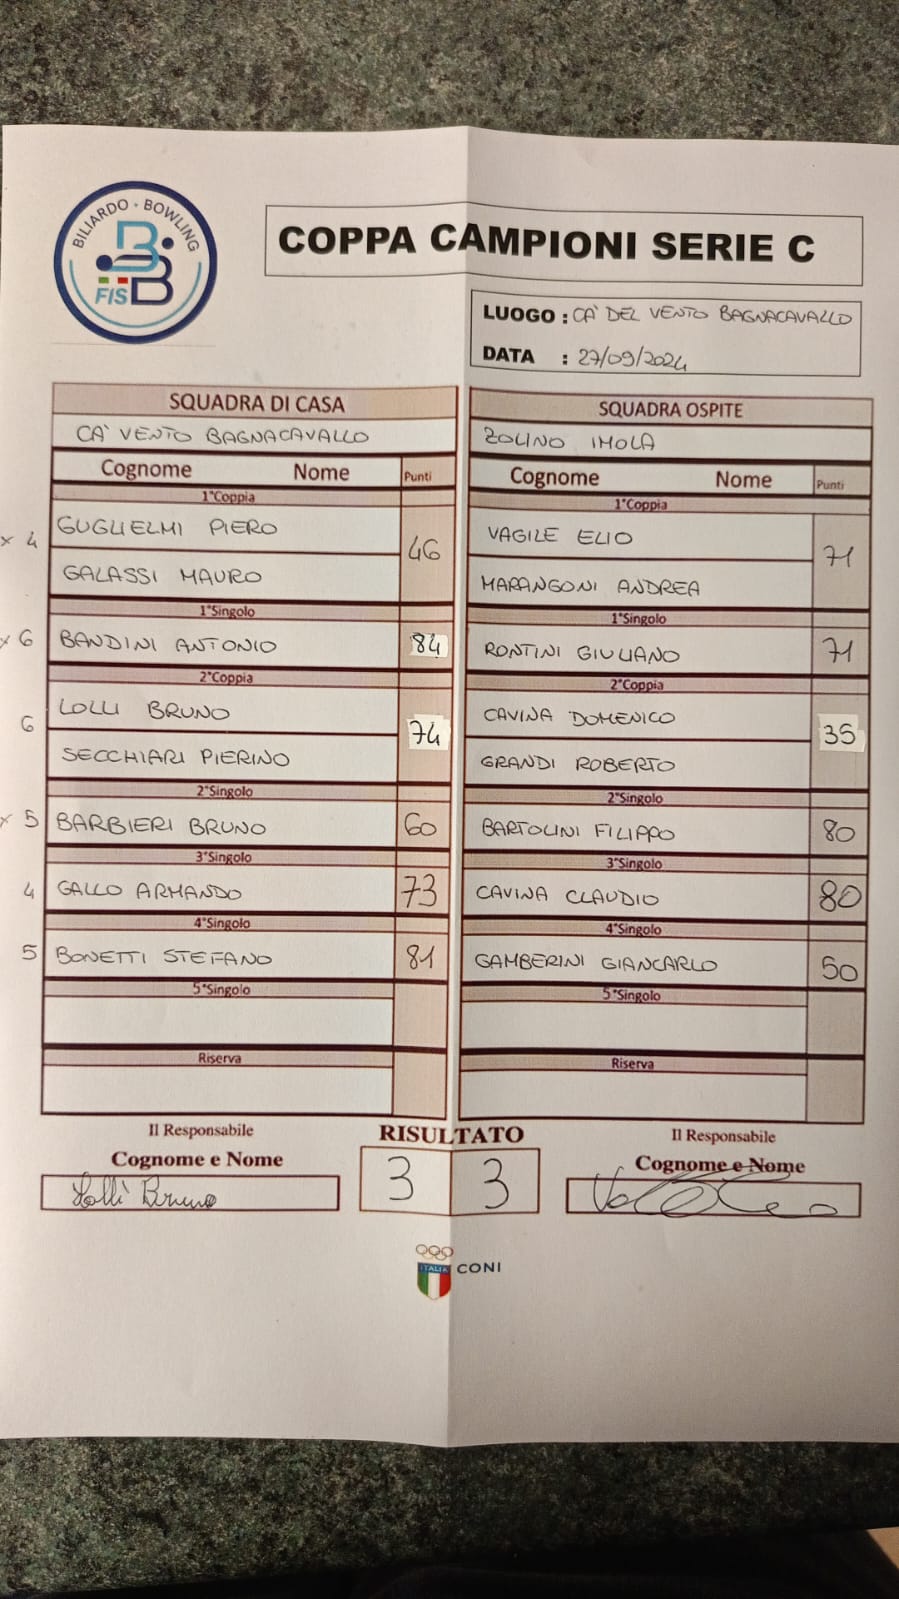 BILIARDO · BOWLING
FISBB
COPPA CAMPIONI SERIE C
LUOGO : CA' DEL VENTO BAGNACAVALLO
DATA : 27/09/2024
SQUADRA DI CASA
CA' VENTO BAGNACAVALLO
Cognome Nome Punti
1°Coppia
x 4 GUGLIELMI PIERO 46
GALASSI MAURO
1°Singolo
x 6 BANDINI ANTONIO 84
2°Coppia
6 LOLLI BRUNO 74
SECCHIARI PIERINO
2°Singolo
x 5 BARBIERI BRUNO 60
3°Singolo
4 GALLO ARMANDO 73
4°Singolo
5 BONETTI STEFANO 81
5°Singolo
Riserva
SQUADRA OSPITE
ZOLINO IMOLA
Cognome Nome Punti
1°Coppia
VAGILE ELIO 71
MARANGONI ANDREA
1°Singolo
RONTINI GIULIANO 71
2°Coppia
CAVINA DOMENICO 35
GRANDI ROBERTO
2°Singolo
BARTOLINI FILIPPO 80
3°Singolo
CAVINA CLAUDIO 80
4°Singolo
GAMBERINI GIANCARLO 50
5°Singolo
Riserva
Il Responsabile
Cognome e Nome
Lolli Bruno
RISULTATO
3 3
Il Responsabile
Cognome e Nome
ITALIA CONI